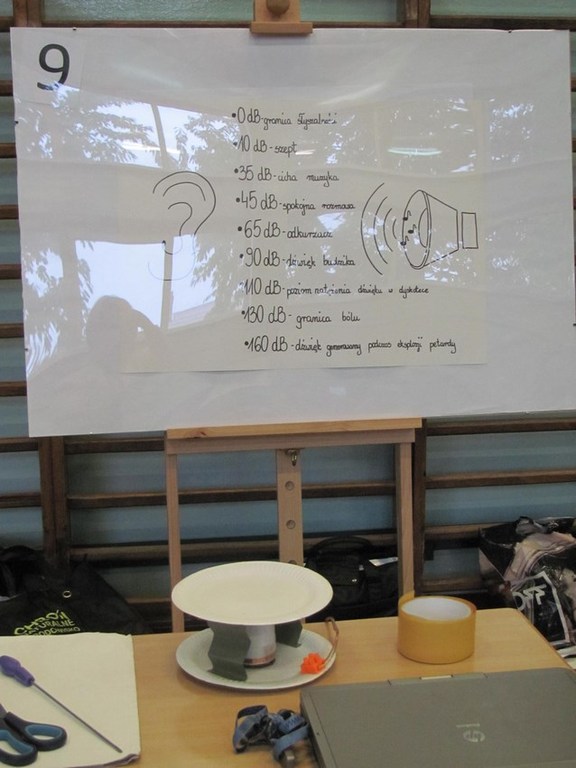 9
• 0 dB - granica słyszalności
• 10 dB - szept
• 35 dB - cicha muzyka
• 45 dB - spokojna rozmowa
• 65 dB - odkurzacz
• 90 dB - dźwięk budzika
• 110 dB - poziom natężenia dźwięku w dyskotece
• 130 dB - granica bólu
• 160 dB - dźwięk generowany podczas eksplozji petardy
hp